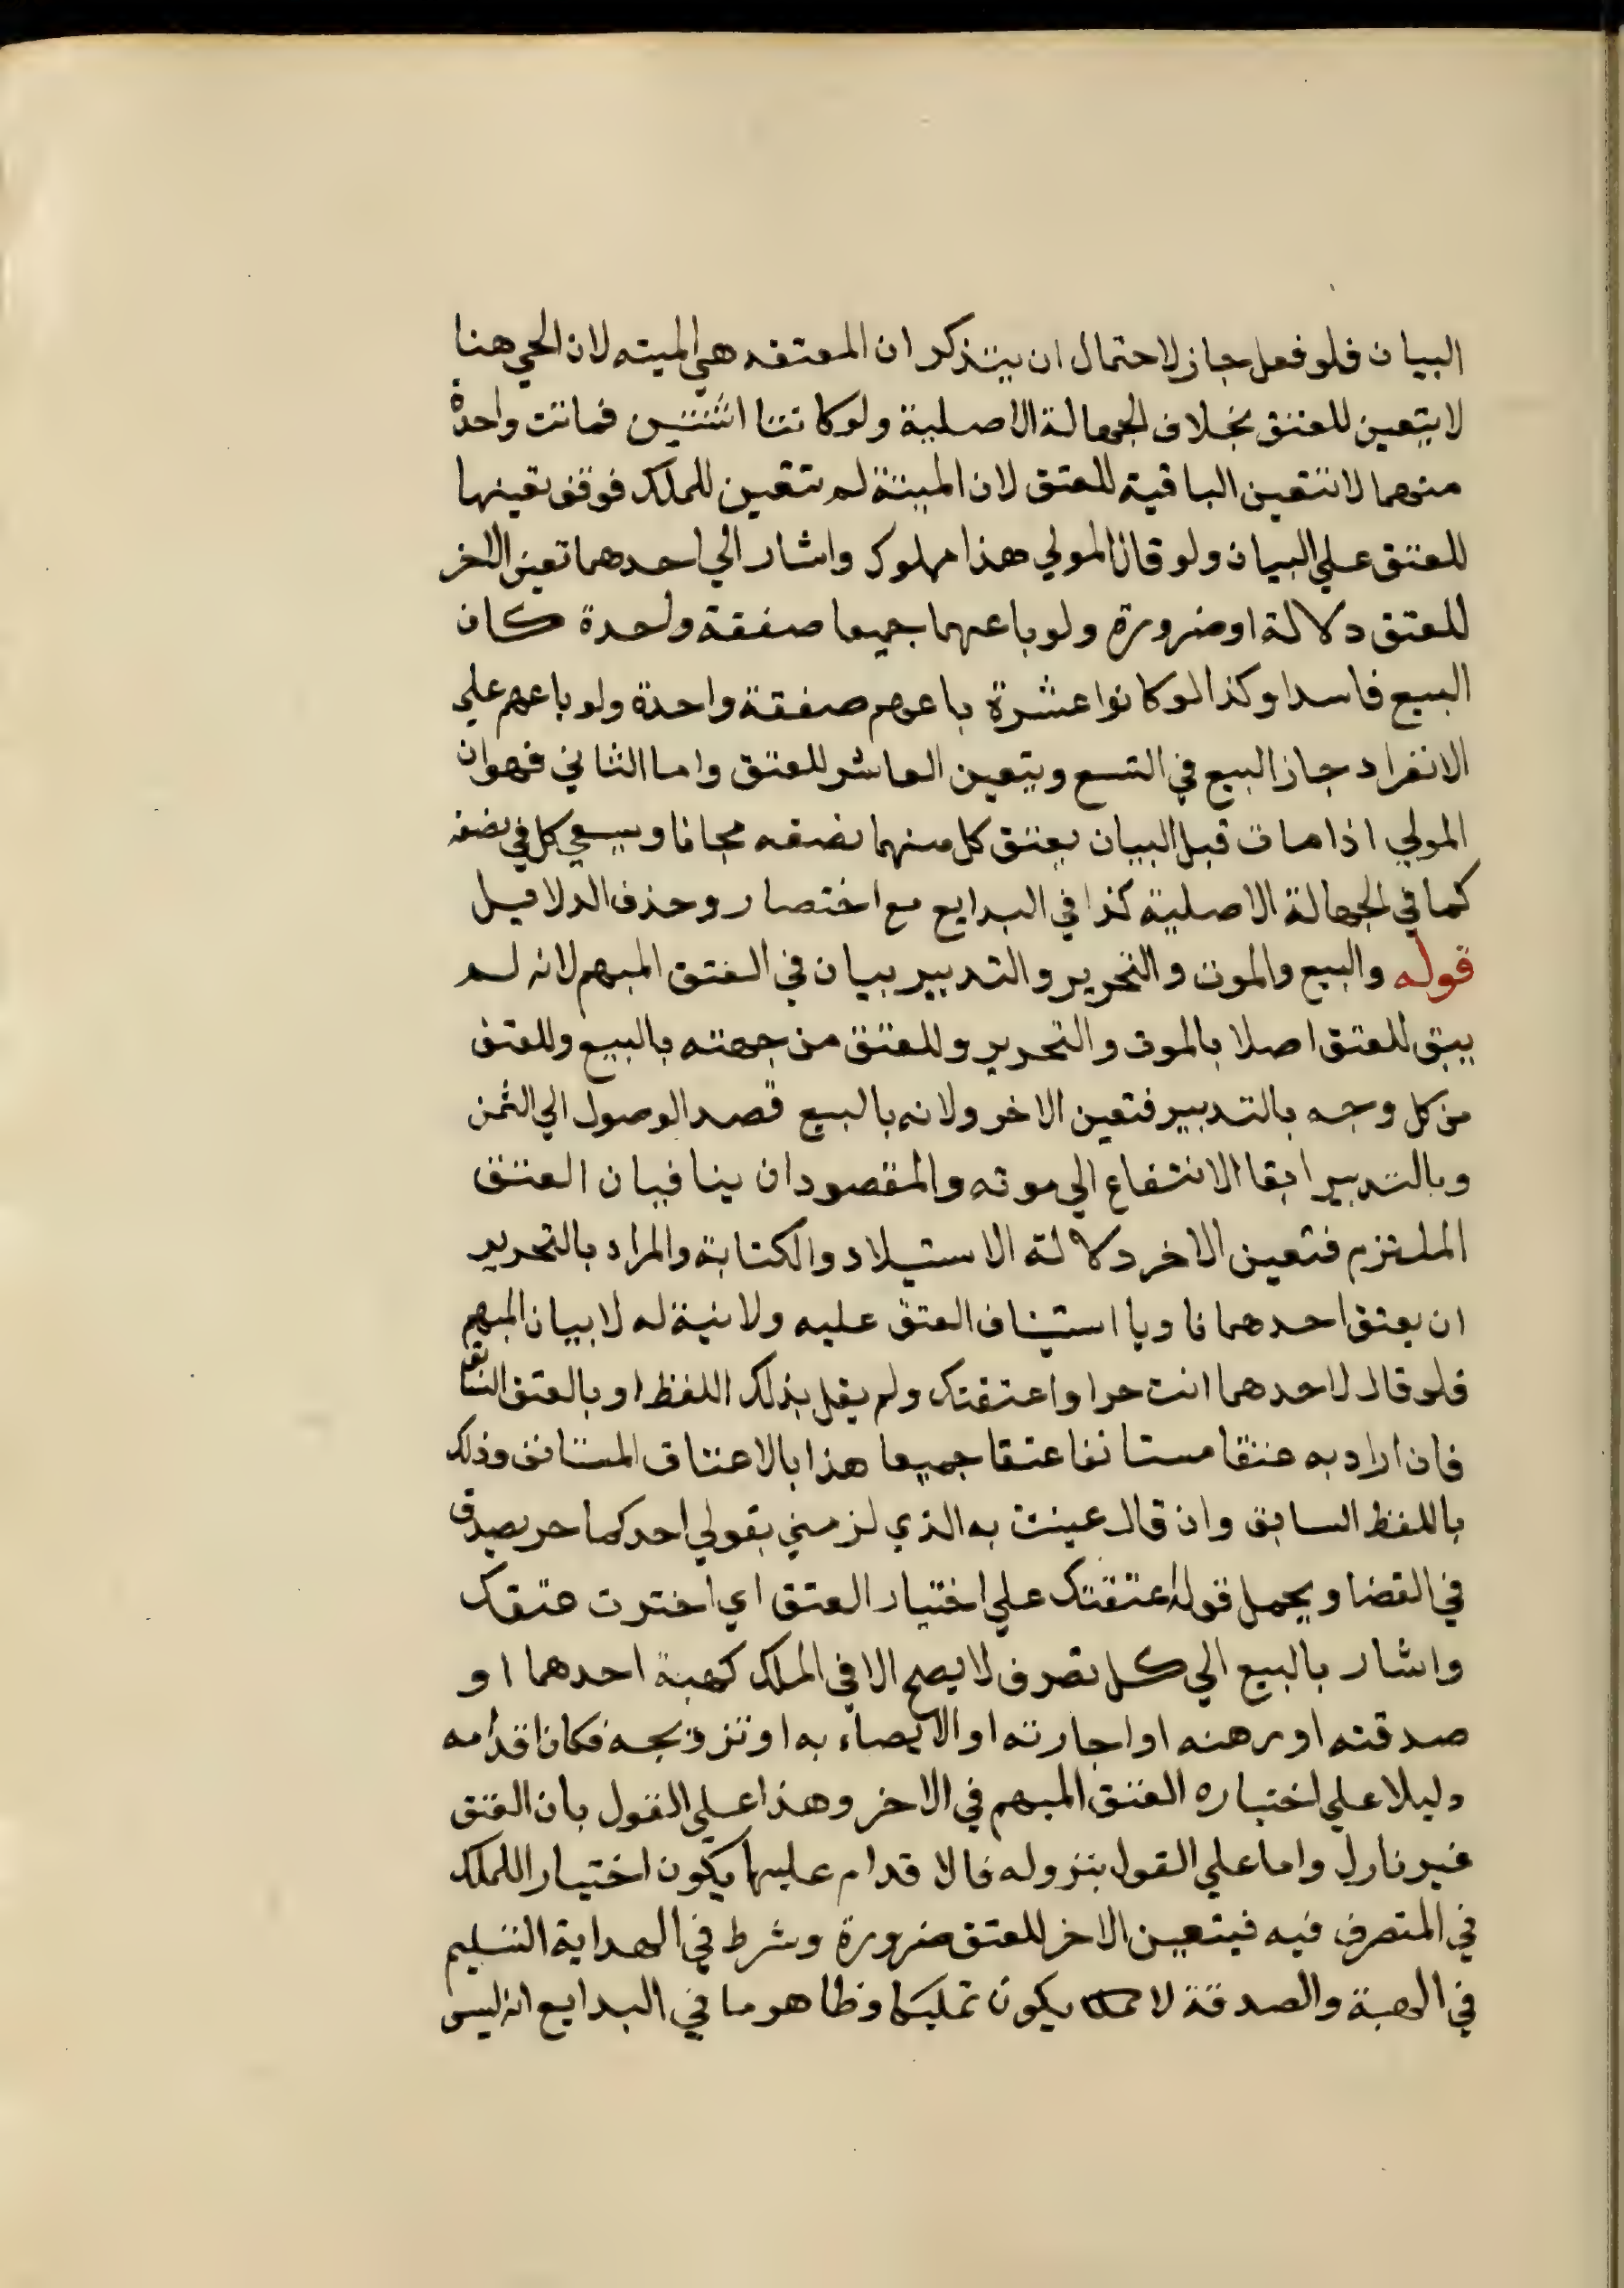 البيان فلو فعل جاز لاحتمال ان يتذكر ان المعتقه هي الميته لان الحي هنا
لا يتعين للعتق بخلاف الجهالة الاصلية ولو كانتا اثنتين فماتت واحدة
منهما لا تتعين الباقية للعتق لان الميتة لم تتعين للملك فوقف تعينها
للعتق علي البيان ولو قال المولي هذا مملوك واشار الي احدهما تعين الاخر
للعتق دلالة او ضرورة ولو باعهما جميعا صفقة واحدة كان
البيع فاسدا وكذا لو كانوا عشرة باعهم صفقة واحدة ولو باعهم علي
الانفراد جاز البيع في التسع ويتعين العاشر للعتق واما الثاني فهو ان
المولي اذا مات قبل البيان يعتق كل منهما نصفه مجانا ويسعي كل في نصفه
كما في الجهالة الاصلية كذا في البدايع مع اختصار وحذف الدلايل
قوله والبيع والموت والتحرير والتدبير بيان في العتق المبهم لانه لم
يبق للعتق اصلا بالموت والتحرير وللعتق من جهته بالبيع وللعتق
من كل وجه بالتدبير فتعين الاخر ولانه بالبيع قصد الوصول الي الثمن
وبالتدبير ابقا الانتفاع الي موته والمقصودان ينافيان العتق
الملتزم فتعين الاخر دلالة الاستيلاد والكتابة والمراد بالتحرير
ان يعتق احدهما ناويا استيناف العتق عليه ولا نية له لا بيان المبهم
فلو قال لاحدهما انت حر او اعتقتك ولم يقل بذلك اللفظ او بالعتق السابق
فان اراد به عتقا مستانفا عتقا جميعا هذا بالاعتاق المستانف وذلك
باللفظ السابق وان قال عينت به الذي لزمني بقولي احدكما حر يصدق
في القضا ويحمل قوله اعتقتك علي اختيار العتق اي اخترت عتقك
واشار بالبيع الي كل تصرف لا يصح الا في الملك كهبة احدهما او
صدقته او رهنه او اجارته او الايصاء به او تزويجه فكان اقدامه
دليلا علي اختياره العتق المبهم في الاخر وهذا علي القول بان العتق
غير نازل واما علي القول بنزوله فالاقدام عليها يكون اختيارا للملك
في المتصرف فيه فيتعين الاخر للعتق ضرورة وشرط في الهداية التسليم
في الهبة والصدقة لا يكون تمليكا وظاهر ما في البدايع انه ليس